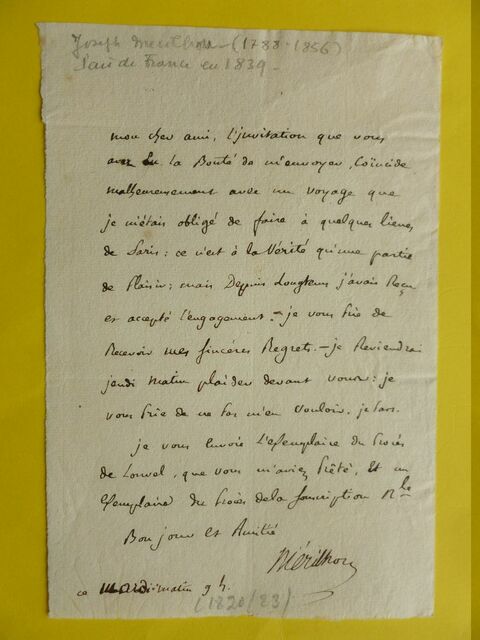 Joseph Merilhou - (1788-1856)
Pair de France en 1839 -
mon cher ami, l'invitation que vous
avez eu la Bonté de m'envoyer, Coïncide
malheureusement avec un voyage que
je m'étais obligé de faire à quelques lieues
de Paris : ce n'est à la Vérité qu'une partie
de Plaisir ; mais Depuis Longtems j'avais Reçu
et accepté l'engagement. - je vous Prie de
Recevoir mes Sincéres Regrets. - je Reviendrai
jeudi matin plaider devant vous : je
vous Prie de ne Pas m'en vouloir.
je vous Envoie l'Exemplaire du Procès
de Louvel, que vous m'aviez Prêté, Et un
Exemplaire du Procès de la Souscription Nle
Bonjour et Amitié
Mérilhou
ce mardi matin 9 h.
(1820/23)